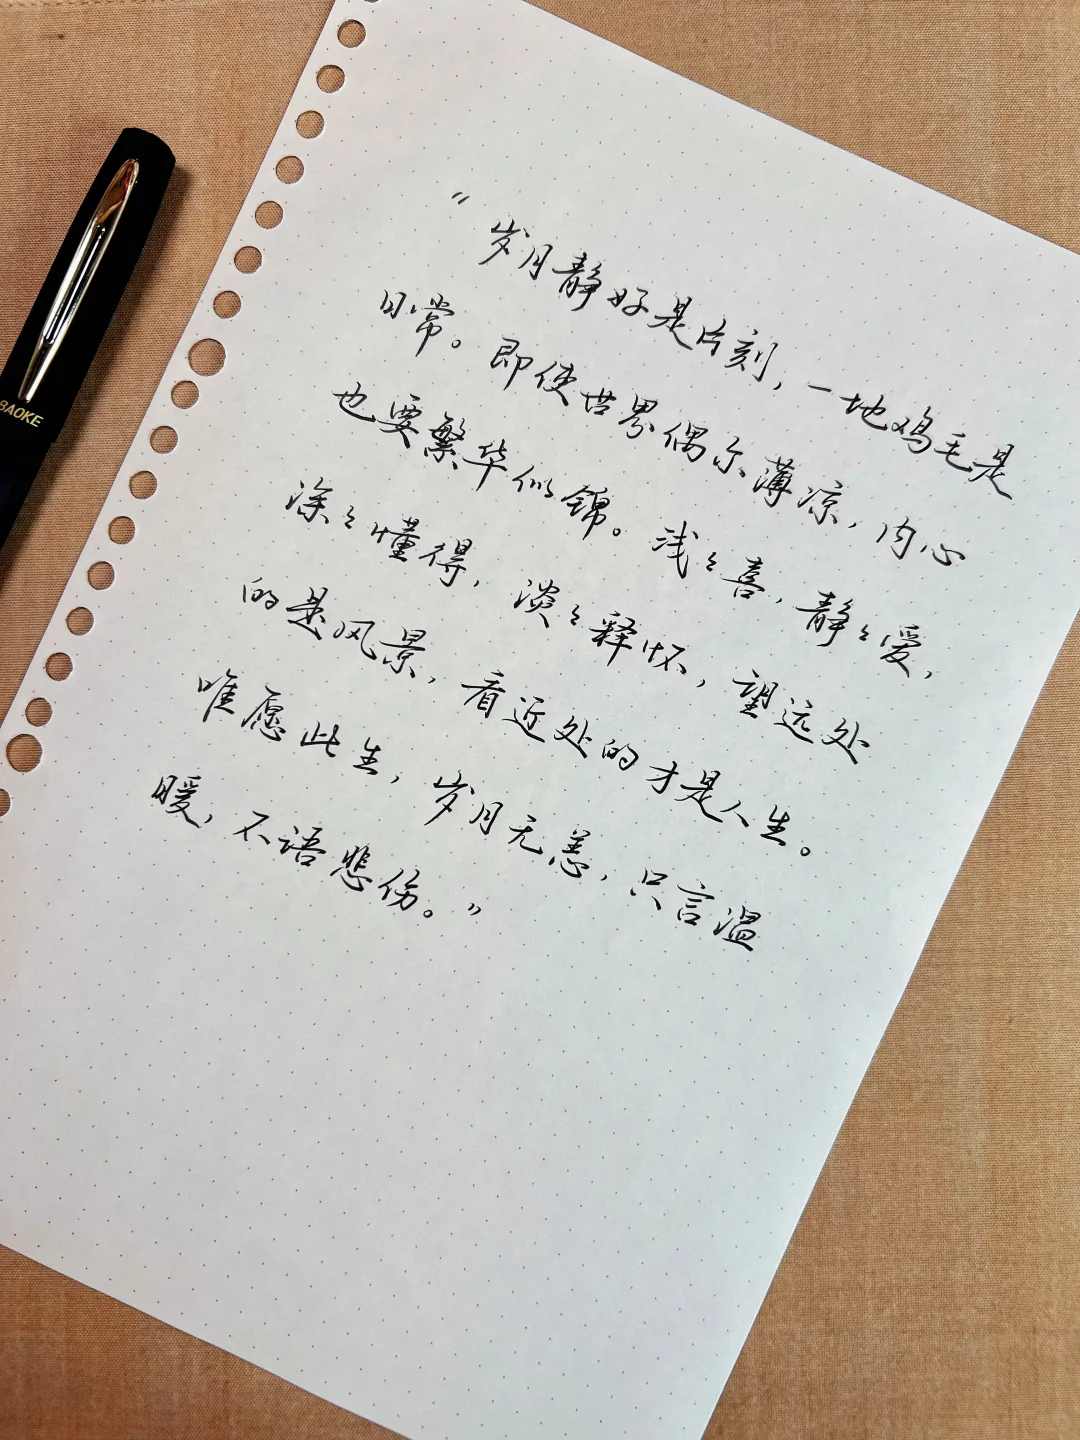 BAOKE
“岁月静好是片刻，一地鸡毛是
日常。即使世界偶尔薄凉，内心
也要繁华似锦。浅々喜，静々爱，
深々懂得，淡々释怀，望远处
的是风景，看近处的才是人生。
唯愿此生，岁月无恙，只言温
暖，不语悲伤。”